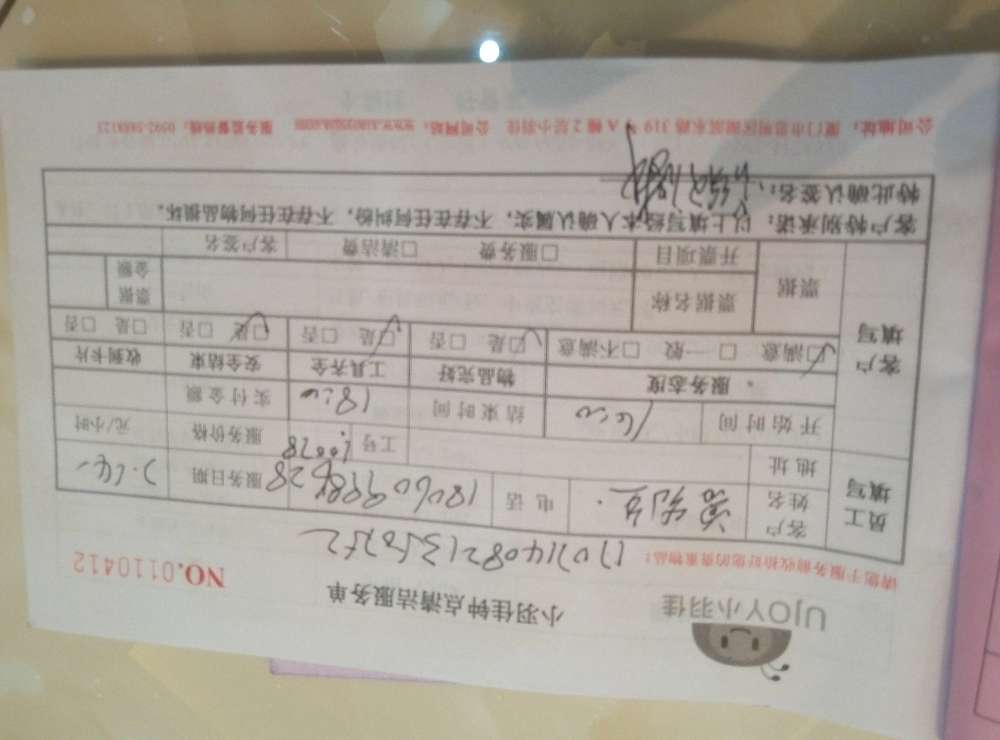 UJOY小羽佳
小羽佳钟点清洁服务单
NO.0110412
请您于服务前收拾好您的贵重物品!
员工填写
客户姓名
电话
服务日期
地址
工号
服务价格
元/小时
开始时间
结束时间 18:00
实付金额
客户填写
服务态度 物品完好 工具齐全 安全结束 收到卡片
☑满意 □一般 □不满意 ☑是 □否 ☑是 □否 ☑是 □否 □是 □否
票据
票据名称
票据金额
开票项目 □服务费 □清洁费 客户签名
客户特别承诺:以上填写经本人确认属实,不存在任何纠纷,不存在任何物品损坏。
特此确认签名:
公司地址:厦门市思明区湖滨东路 319 号 A 幢 2 层小羽佳 公司网站: 服务监督热线:0592-5888123